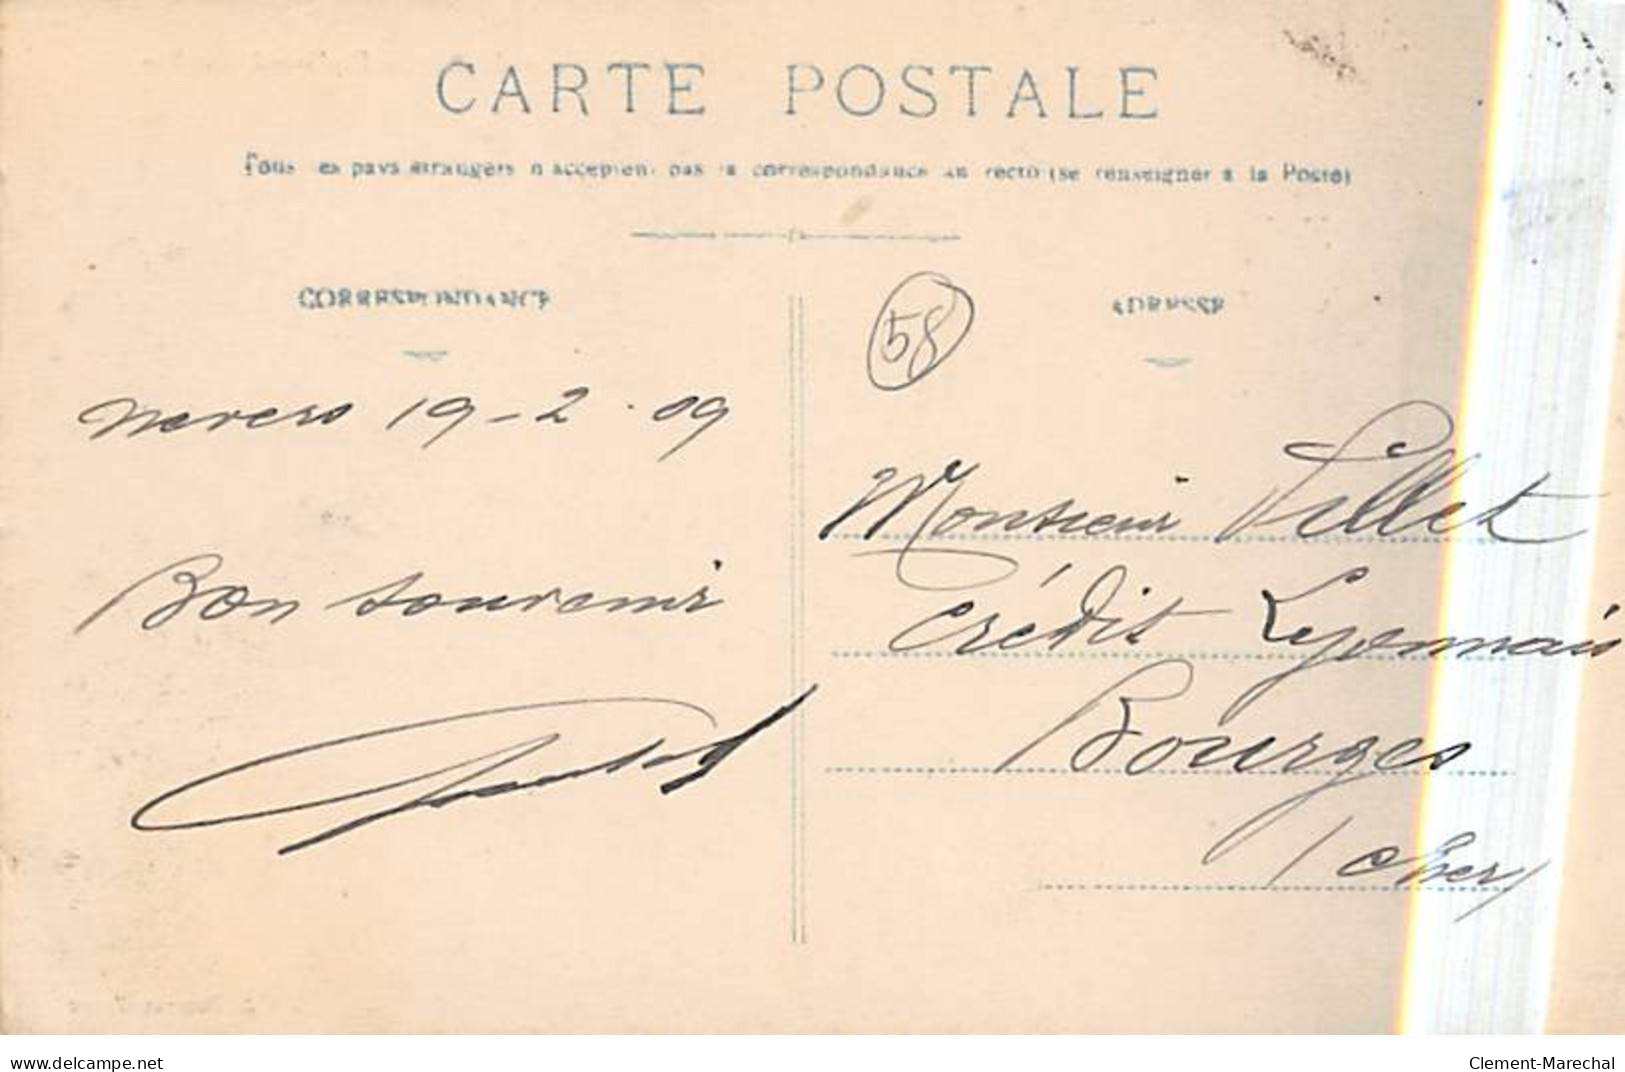 CARTE POSTALE
Tous les pays étrangers n'acceptent pas la correspondance au recto (se renseigner à la Poste)
CORRESPONDANCE
ADRESSE
58
Nevers 19-2.09
Monsieur Pillet
Bon souvenir
Crédit Lyonnais
Bourges
(Cher)
www.delcampe.net
Clement-Marechal